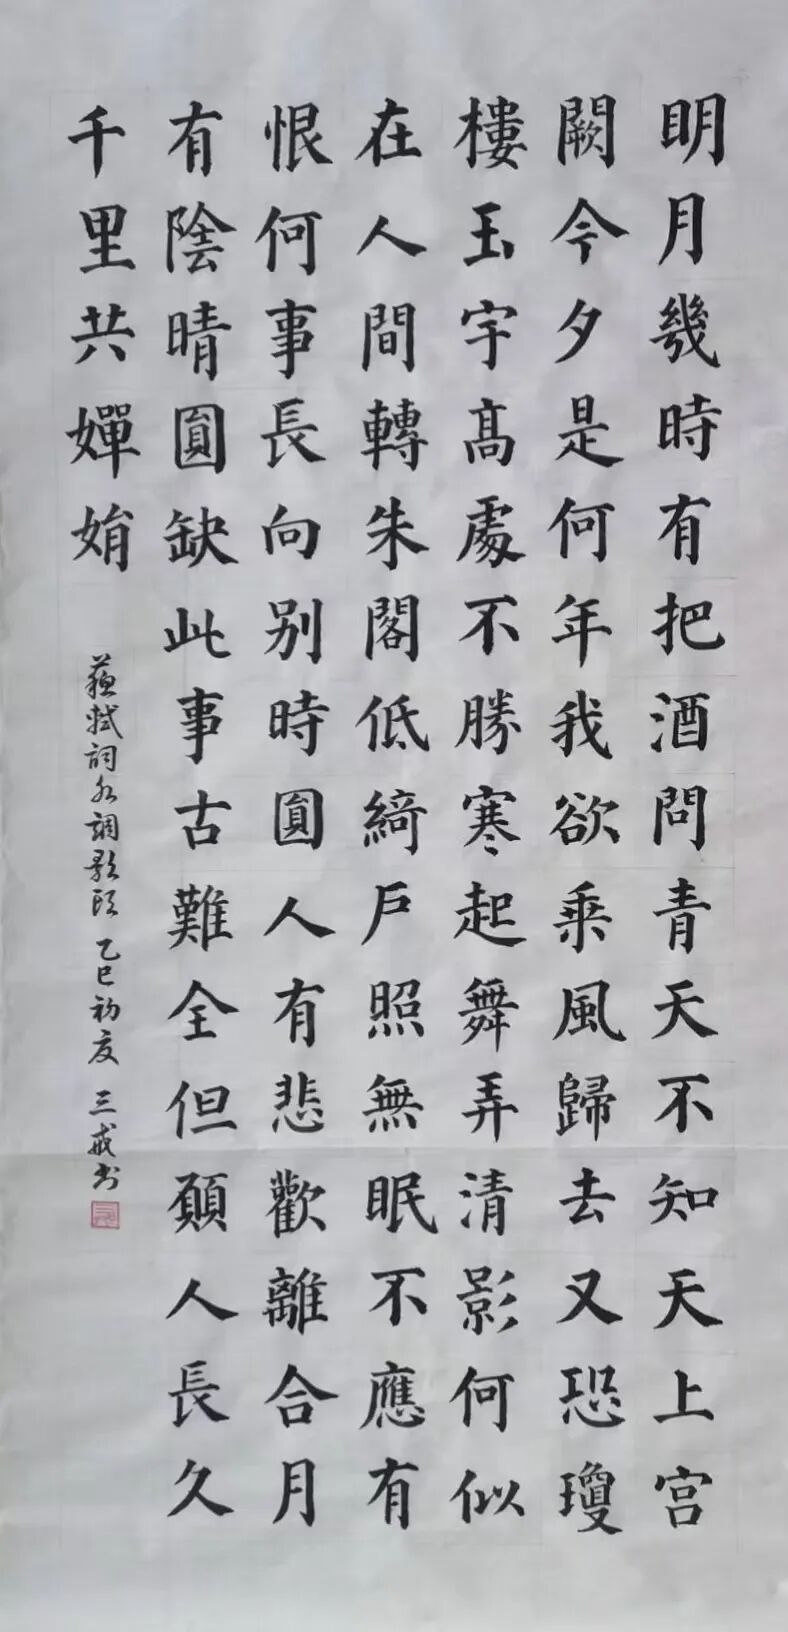 明月幾時有把酒問青天不知天上宫
闕今夕是何年我欲乘風歸去又恐瓊
樓玉宇髙處不勝寒起舞弄清影何似
在人間轉朱閣低綺户照無眠不應有
恨何事長向别時圓人有悲歡離合月
有陰晴圓缺此事古難全但願人長久
千里共嬋娟
蘇軾詞水調歌頭 乙巳初夏 三戒書